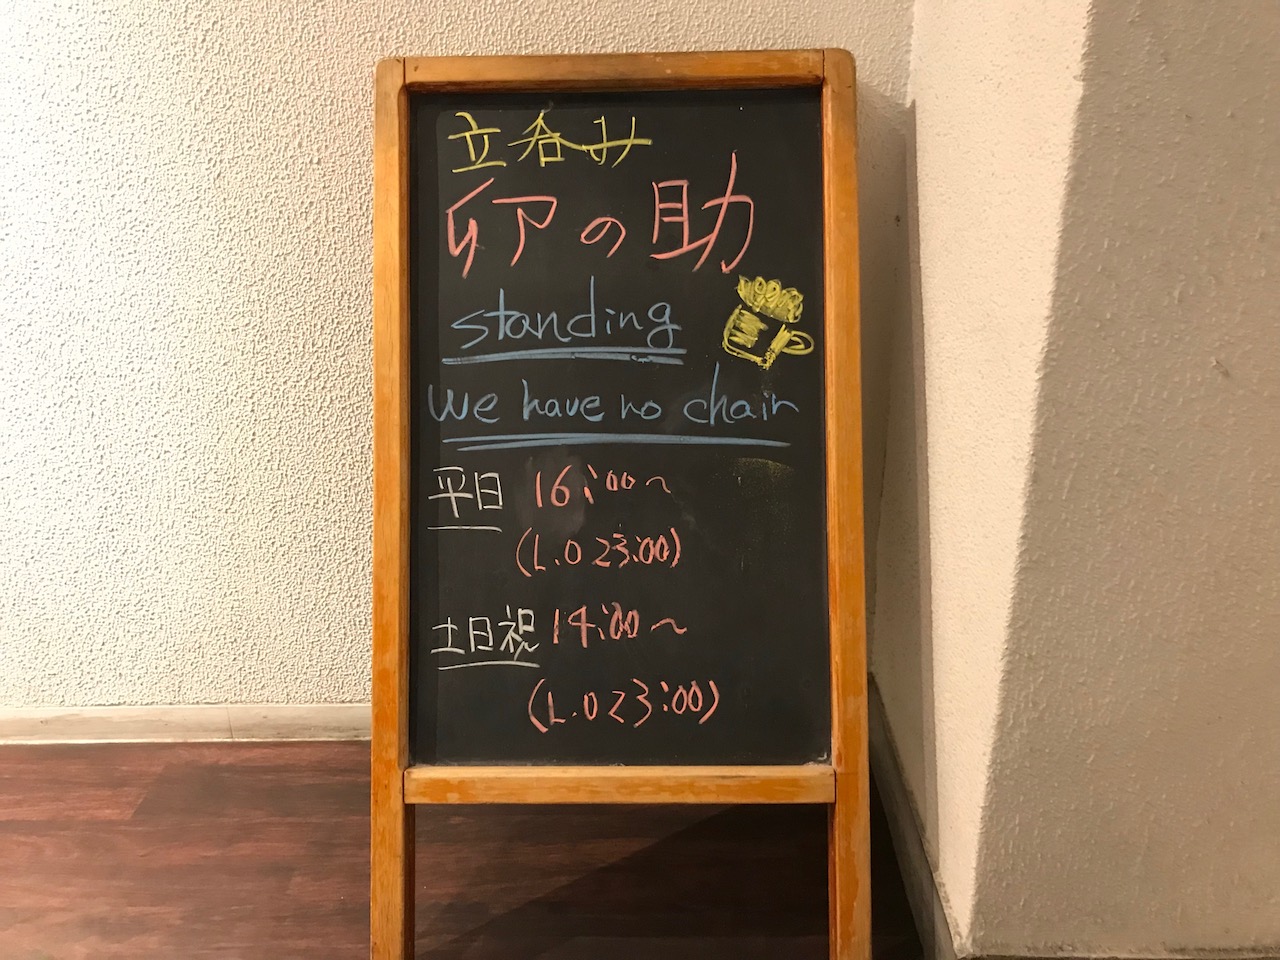 立呑み
卯の助
standing
We have no chair
平日 16:00~
(L.O 23:00)
土日祝 14:00~
(L.O 23:00)